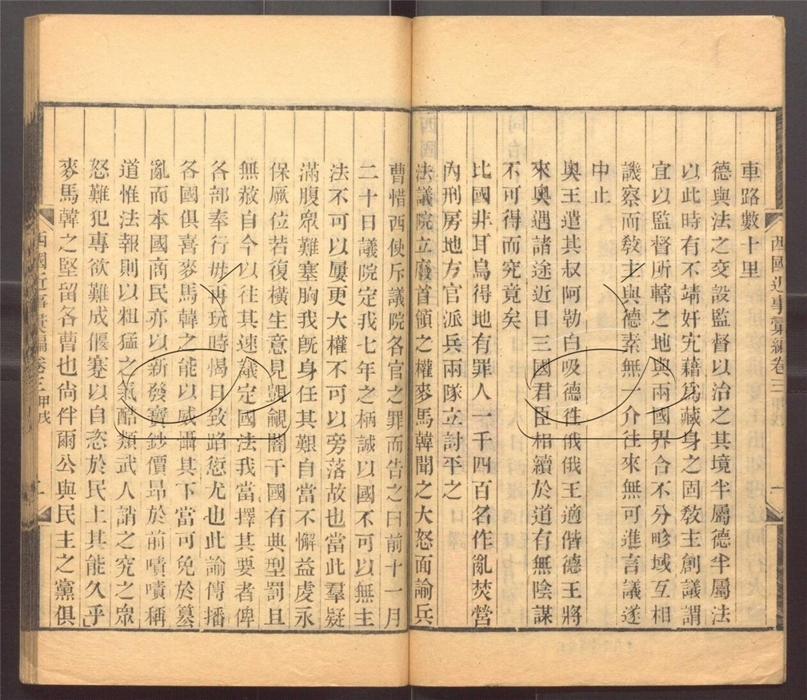 車路數十里
德與法之交設監督以治之其境半屬德半屬法
以此時有不靖奸宄藉爲藏身之固敎主創議謂
宜以監督所轄之地與兩國界合不分畛域互相
譏察而敎主與德素無一介往來無可進言議遂
中止
奧王遣其叔阿勒白吸德徃俄俄王適偕德王將
來奧遇諸途近日三國君臣相續於道有無陰謀
不可得而究竟矣
比國非耳烏得地有罪人一千四百名作亂焚營
內刑房地方官派兵兩隊立討平之
法議院立廢首領之權麥馬韓聞之大怒面諭兵
西國近事彙編卷三 甲戌
一
曹惜西使斥議院各官之罪而告之曰前十一月
二十日議院定我七年之柄誠以國不可以無主
法不可以屢更大權不可以旁落故也當此羣疑
滿腹眾難塞胸我旣身任其艱自當不懈益虔永
保厥位若復橫生意見覬覦闇干國有典型罰且
無赦自今以往其速議定國法我當擇其要者俾
各部奉行毋再玩時愒日致踣愆尤也此諭傳播
各國俱喜麥馬韓之能以威讋其下當可免於墓
亂而本國商民亦以新發寶鈔價昂於前嘖嘖稱
道惟法報則以粗猛之氣酷類武人誚之究之眾
怒難犯專欲難成偃蹇以自恣於民上其能久乎
麥馬韓之堅留各曹也尙件爾公與民主之黨俱
西國近事彙編卷三 甲戌